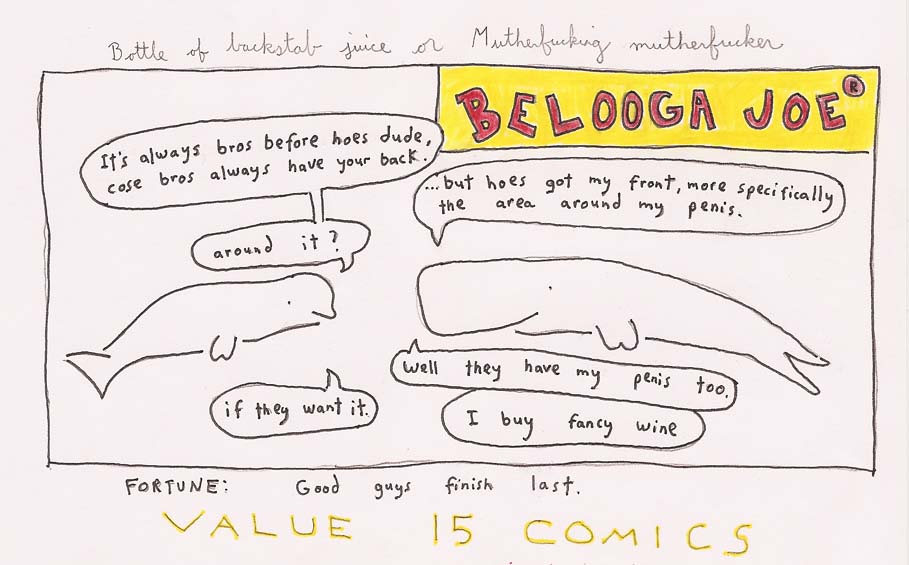 Bottle of backstab juice or Mutherfucking mutherfucker
BELOOGA JOE®
It's always bros before hoes dude,
cose bros always have your back.
...but hoes got my front, more specifically
the area around my penis.
around it?
well they have my penis too.
if they want it.
I buy fancy wine
FORTUNE: Good guys finish last.
VALUE 15 COMICS